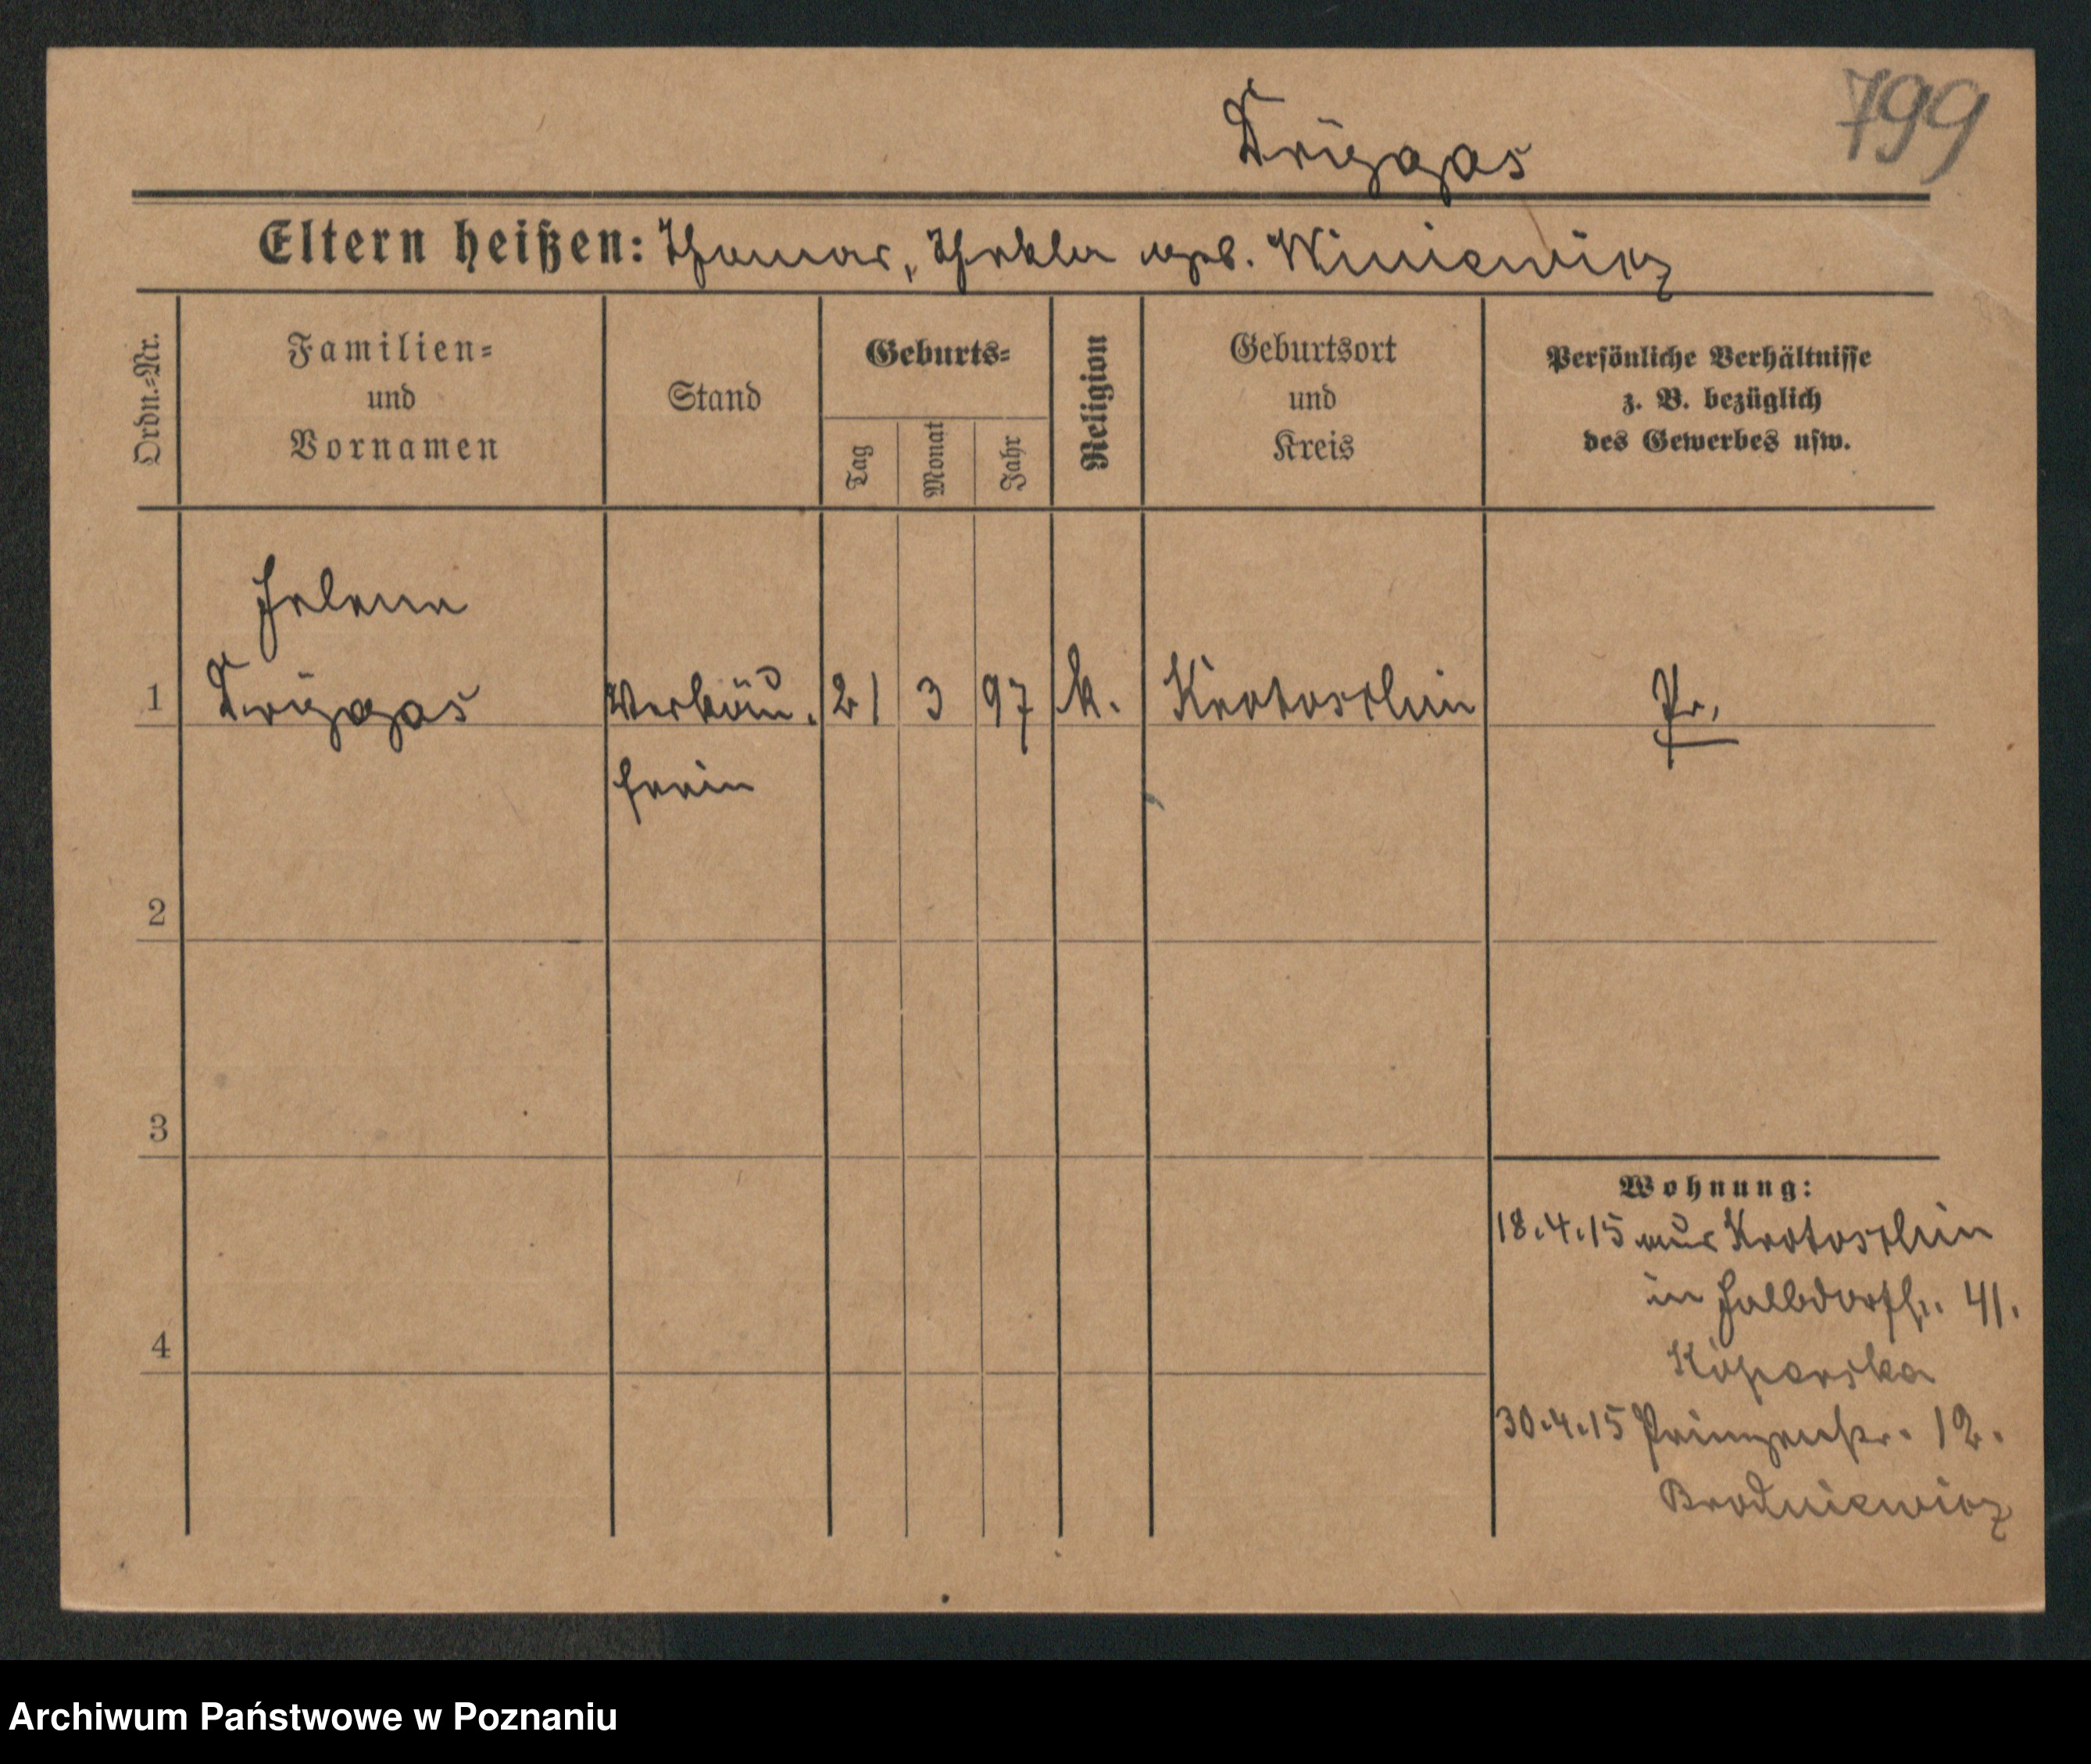 799
Dryzgas
Eltern heißen: Thomas, Thekla geb. Winiewicz
Ordn.=Nr.
Familien=
und
Vornamen
Stand
Geburts=
Tag
Monat
Jahr
Religion
Geburtsort
und
Kreis
Persönliche Verhältnisse
z. B. bezüglich
des Gewerbes usw.
Helena
1 Verkäu. 21 3 97 k. Krotoschin Pr.
ferin
2
3
4
Wohnung:
18.4.15 aus Krotoschin
in Halbdorfstr. 41.
30.4.15 Prinzenstr. 12.
Brodniewicz
Archiwum Państwowe w Poznaniu